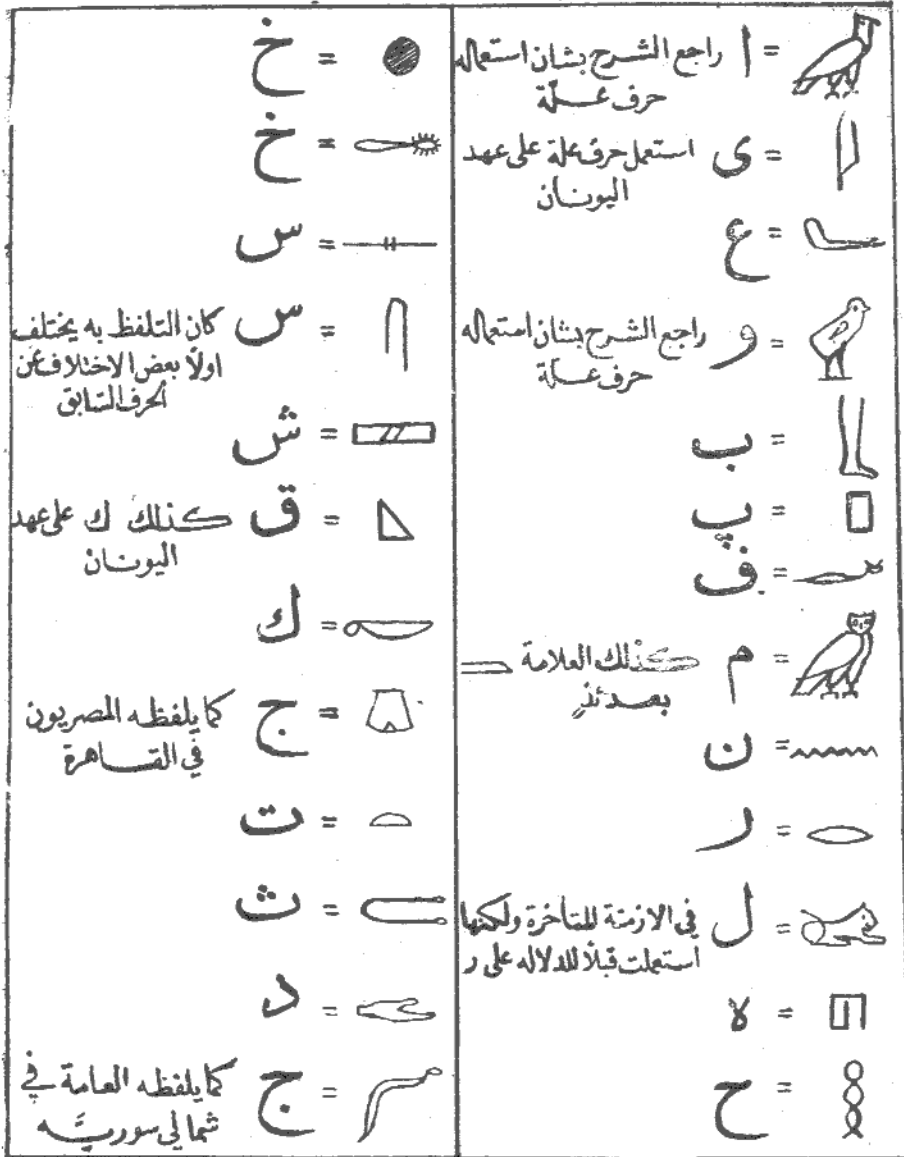 = ا راجع الشرح بشان استعماله
حرف علّة
= ى استعمل حرف علة على عهد
اليونان
= ع
= و راجع الشرح بشان استعماله
حرف علّة
= ب
= پ
= ف
= م كذلك العلامة
بعدئذٍ
= ن
= ر
= ل في الازمنة المتأخرة ولكنها
استعملت قبلاً للدلاله على ر
= ه
= ح
= خ
= خ
= س
= س كان التلفظ به يختلف
اولًا بعض الاختلاف عن
الحرف السابق
= ش
= ق كذلك ك على عهد
اليونان
= ك
= ج كما يلفظه المصريون
في القاهرة
= ت
= ث
= د
= ج كما يلفظه العامة في
شمالي سوريَّه